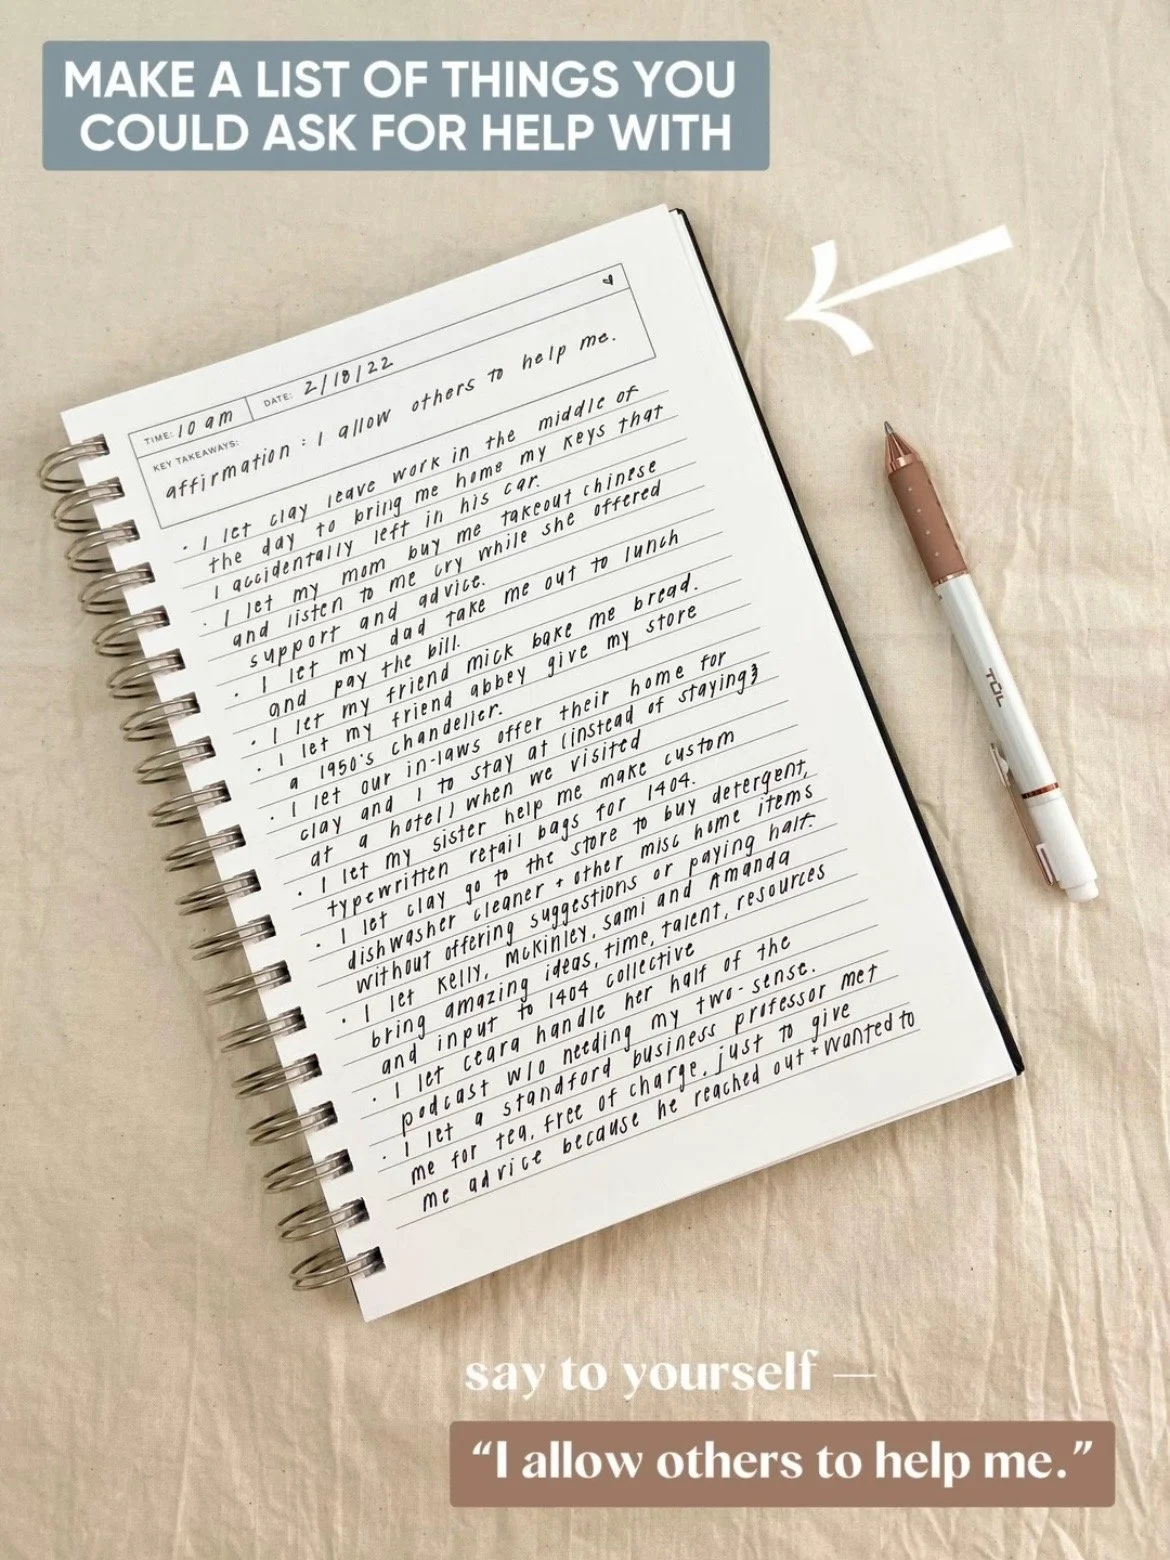 MAKE A LIST OF THINGS YOU
COULD ASK FOR HELP WITH
TIME: 10 am
DATE: 2/18/22
KEY TAKEAWAYS:
affirmation : I allow others to help me.
• I let clay leave work in the middle of
the day to bring me home my keys that
I accidentally left in his car.
• I let my mom buy me takeout chinese
and listen to me cry while she offered
support and advice.
• I let my dad take me out to lunch
and pay the bill.
• I let my friend mick bake me bread.
• I let my friend abbey give my store
a 1950's chandelier.
• I let our in-laws offer their home for
clay and I to stay at (instead of staying
at a hotel) when we visited
• I let my sister help me make custom
typewritten retail bags for 1404.
• I let clay go to the store to buy detergent,
dishwasher cleaner + other misc home items
without offering suggestions or paying half.
• I let Kelly, McKinley, Sami and Amanda
bring amazing ideas, time, talent, resources
and input to 1404 collective
• I let ceara handle her half of the
podcast w/o needing my two-sense.
• I let a standford business professor met
me for tea, free of charge, just to give
me advice because he reached out + wanted to
TUL
say to yourself —
"I allow others to help me."